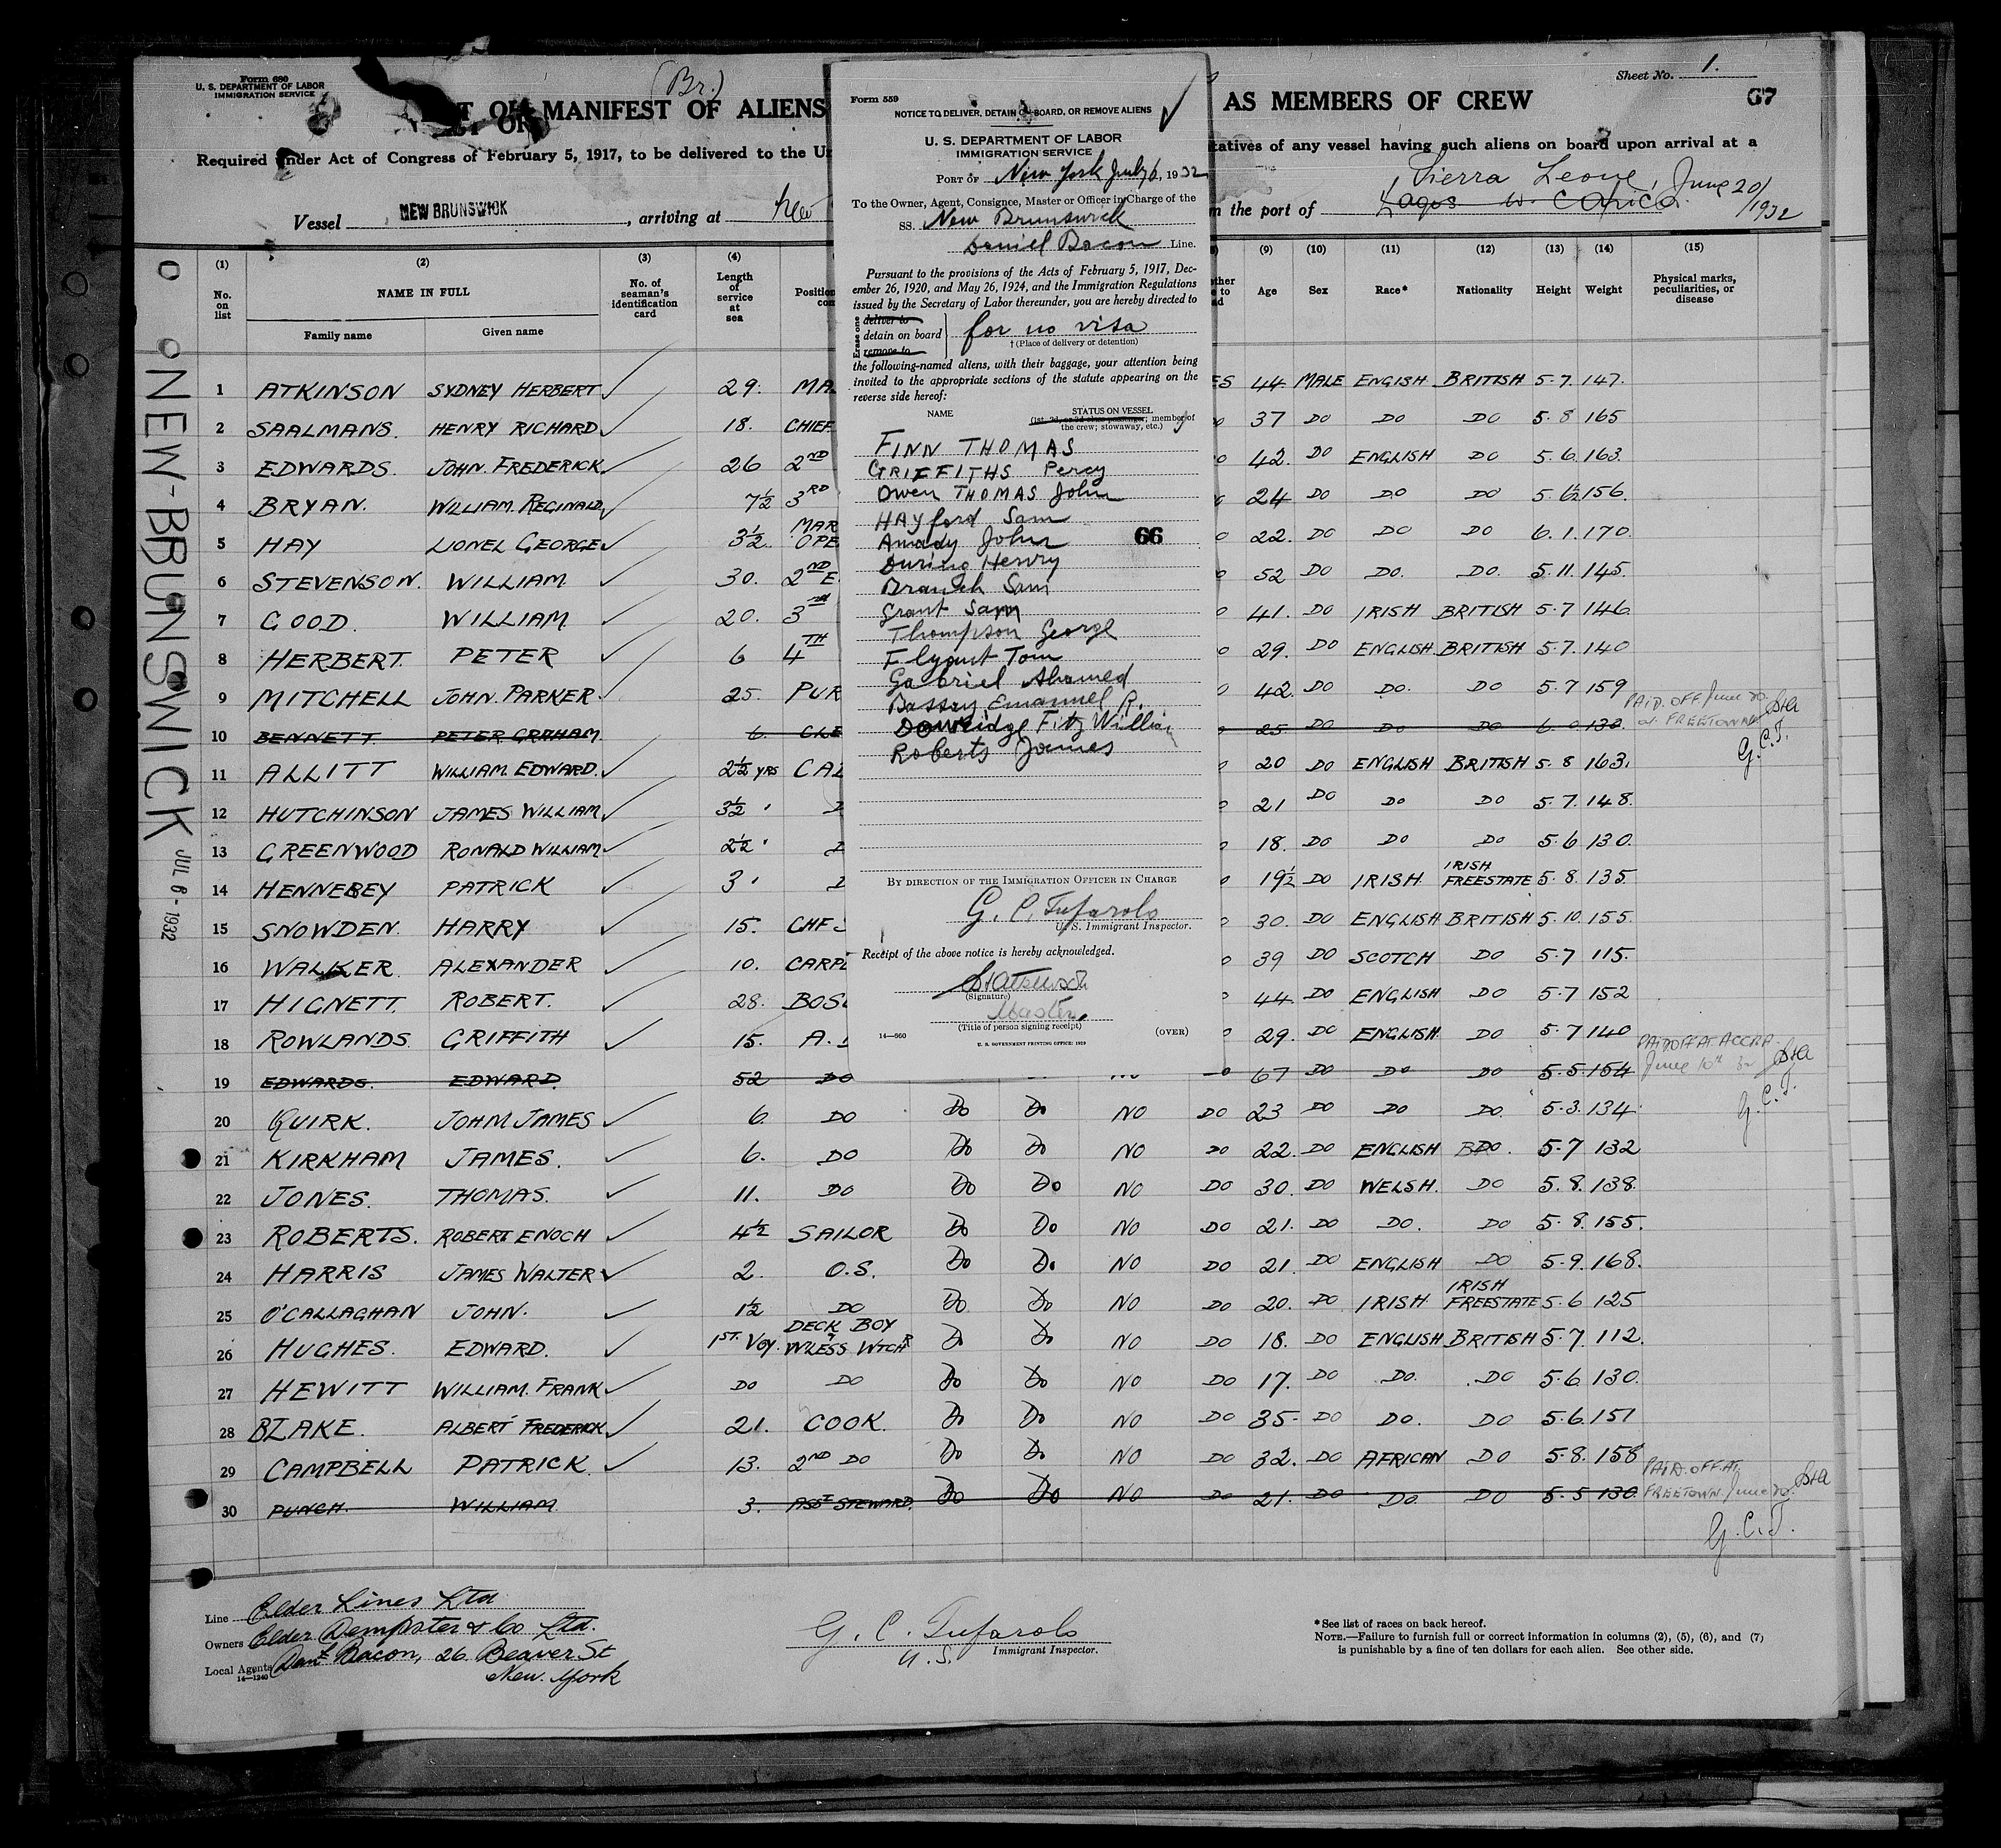 Form 680
U. S. DEPARTMENT OF LABOR
IMMIGRATION SERVICE
(Br.)
Sheet No. 1.
67
OR MANIFEST OF ALIENS
AS MEMBERS OF CREW
Required under Act of Congress of February 5, 1917, to be delivered to the
tatives of any vessel having such aliens on board upon arrival at a
Vessel NEW BRUNSWICK, arriving at New
the port of Sierra Leone, June 20/1932
Lagos W. Africa
NEW-BRUNSWICK JUL 6 - 1932
(1) (2) (3) (4) (9) (10) (11) (12) (13) (14) (15)
No. on list
NAME IN FULL
Family name Given name
No. of seaman's identification card
Length of service at sea
Age Sex Race* Nationality Height Weight
Physical marks, peculiarities, or disease
1 ATKINSON SYDNEY HERBERT 29. MA ES 44 MALE ENGISH BRITISH 5.7. 147.
2 SAALMANS. HENRY RICHARD 18. CHIEF 37 DO DO DO 5.8 165
3 EDWARDS. JOHN. FREDERICK 26 2ND 42. DO ENGLISH DO 5.6. 163.
4 BRYAN. WILLIAM. REGINALD 7½ 3RD 24 DO DO DO 5.6½ 156.
5 HAY LIONEL GEORGE 3½. MAR OPE 22. DO DO DO 6.1. 170.
6 STEVENSON. WILLIAM 30. 2ND E 52 DO DO. DO. 5.11. 145.
7 GOOD. WILLIAM 20. 3 41. DO IRISH BRITISH 5.7 146.
8 HERBERT. PETER 6 4TH 29. DO ENGLISH BRITISH 5.7. 140
9 MITCHELL JOHN. PARKER 25. PUR 42. DO DO. DO 5.7 159
10 BENNETT. PETER GRAHAM. 6. CLE 25 DO DO DO 6.0. 132. PAID. OFF June 20. at FREETOWN G.C.T.
11 ALLITT WILLIAM. EDWARD. 2½ YRS CA 20 DO ENGLISH BRITISH 5.8 163.
12 HUTCHINSON JAMES WILLIAM 3½ 21 DO DO DO 5.7. 148.
13 GREENWOOD RONALD WILLIAM 2½ 18. DO DO DO 5.6 130.
14 HENNEBEY PATRICK 3 19½ DO IRISH. IRISH FREESTATE 5.8. 135.
15 SNOWDEN. HARRY 15. CHF 30. DO ENGLISH BRITISH 5.10. 155.
16 WALKER. ALEXANDER 10. CARP 39 DO SCOTCH DO 5.7 115.
17 HIGNETT. ROBERT. 28. BOS 44 DO ENGLISH DO 5.7 152
18 ROWLANDS. GRIFFITH 15. A. 29. DO ENGLISH. DO 5.7 140
19 EDWARDS. EDWARD. 52 DO 67 DO DO DO 5.5. 154 PAID OFF AT ACCRA. June 10th G.C.T.
20 QUIRK. JOHN JAMES 6. DO Do Do NO DO 23 DO DO DO. 5.3. 134
21 KIRKHAM JAMES. 6. DO Do Do NO DO 22. DO ENGLISH DO. 5.7 132
22 JONES. THOMAS. 11. DO Do Do NO DO 30. DO WELSH. DO 5.8. 138.
23 ROBERTS. ROBERT ENOCH 4½ SAILOR Do Do NO DO 21. DO DO. DO 5.8. 155.
24 HARRIS JAMES WALTER 2. O.S. Do Do NO DO 21. DO ENGLISH DO 5.9. 168.
25 O'CALLAGHAN JOHN. 1½ DO Do Do NO DO 20. DO IRISH IRISH FREESTATE 5.6 125
26 HUGHES. EDWARD. 1ST. VOY. DECK BOY W'LESS WTCHR Do Do NO DO 18. DO ENGLISH BRITISH 5.7. 112.
27 HEWITT WILLIAM. FRANK DO DO Do Do NO DO 17. DO DO. DO 5.6. 130.
28 BLAKE. ALBERT FREDERICK 21. COOK. Do Do NO DO 35. DO DO. DO 5.6. 151
29 CAMPBELL PATRICK. 13. 2ND DO Do Do NO DO 32. DO AFRICAN DO 5.8. 158
30 PUNCH. WILLIAM 3. ASST STEWARD. Do Do NO DO 21. DO DO DO 5.5 130 PAID. OFF. AT. FREETOWN. June 20. G.C.T.
Line Elder Lines Ltd
Owners Elder Dempster & Co Ltd.
Local Agents Danl Bacon, 26 Beaver St
New. York
14—1240
G. C. Tufarolo
U.S. Immigrant Inspector.
*See list of races on back hereof.
NOTE.—Failure to furnish full or correct information in columns (2), (5), (6), and (7)
is punishable by a fine of ten dollars for each alien. See other side.
Form 559
NOTICE TO DELIVER, DETAIN ON BOARD, OR REMOVE ALIENS
U. S. DEPARTMENT OF LABOR
IMMIGRATION SERVICE
PORT OF New York July 6, 1932
To the Owner, Agent, Consignee, Master or Officer in Charge of the
SS. New Brunswick
Daniel Bacon Line.
Pursuant to the provisions of the Acts of February 5, 1917, Dec-
ember 26, 1920, and May 26, 1924, and the Immigration Regulations
issued by the Secretary of Labor thereunder, you are hereby directed to
Erase one
deliver to
detain on board
remove to
for no visa
† (Place of delivery or detention)
the following-named aliens, with their baggage, your attention being
invited to the appropriate sections of the statute appearing on the
reverse side hereof:
NAME STATUS ON VESSEL
(1st, 2d, or 3d class passenger; member of
the crew; stowaway, etc.)
FINN THOMAS
GRIFFITHS Percy
Owen THOMAS John
HAYford Sam
Amady John
During Henry
Branch Sam
Grant Sam
Thompson George
Flyqunt Tom
Gabriel Ahamed
Bassey Emanuel R.
Dowridge Fitz William
Roberts James
66
BY DIRECTION OF THE IMMIGRATION OFFICER IN CHARGE
G. C. Tufarolo
U. S. Immigrant Inspector.
Receipt of the above notice is hereby acknowledged.
(Signature)
Master.
(Title of person signing receipt)
14—660
(OVER)
U. S. GOVERNMENT PRINTING OFFICE: 1929